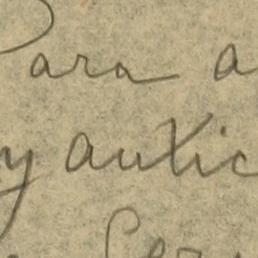 Para a
y autic
Ser